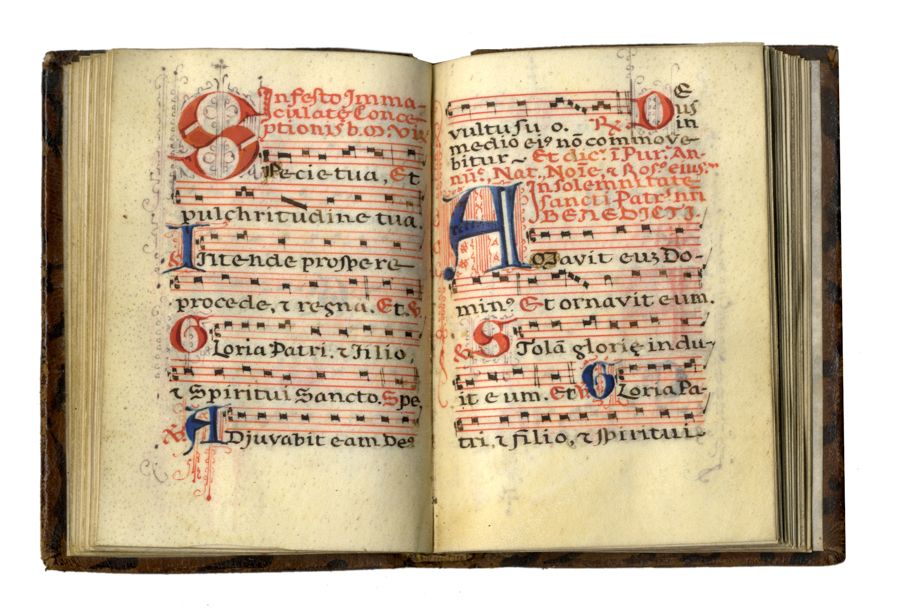 In festo Imma-
culatę Conce-
ptionis b. M. Vir.
Specie tua, Et
pulchritudine tua.
Intende prospere
procede, ⁊ regna. Et
Gloria Patri. ⁊ Filio,
⁊ Spiritui Sancto. Spe
Adjuvabit eam De9
Deus
vultu suo. in
medio ei9 nō commove-
bitur~ Et dic. ī Pur. An-
In solemnitate
sancti Patr. nri
BENEDICTI.
Amavit eum Do-
min9 Et ornavit eum.
Stolā glorię indu-
it eum. Et Gloria Pa-
tri, ⁊ filio, ⁊ spiritui